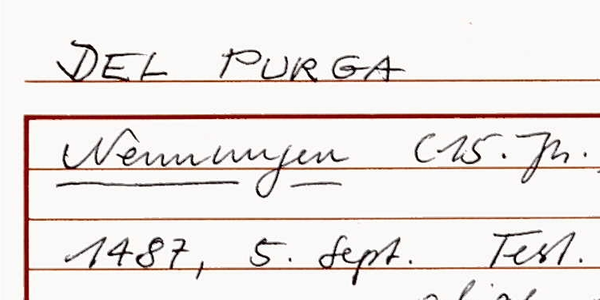 DEL PURGA
Nennungen (15. Jh.
1487, 5. Sept. Test.